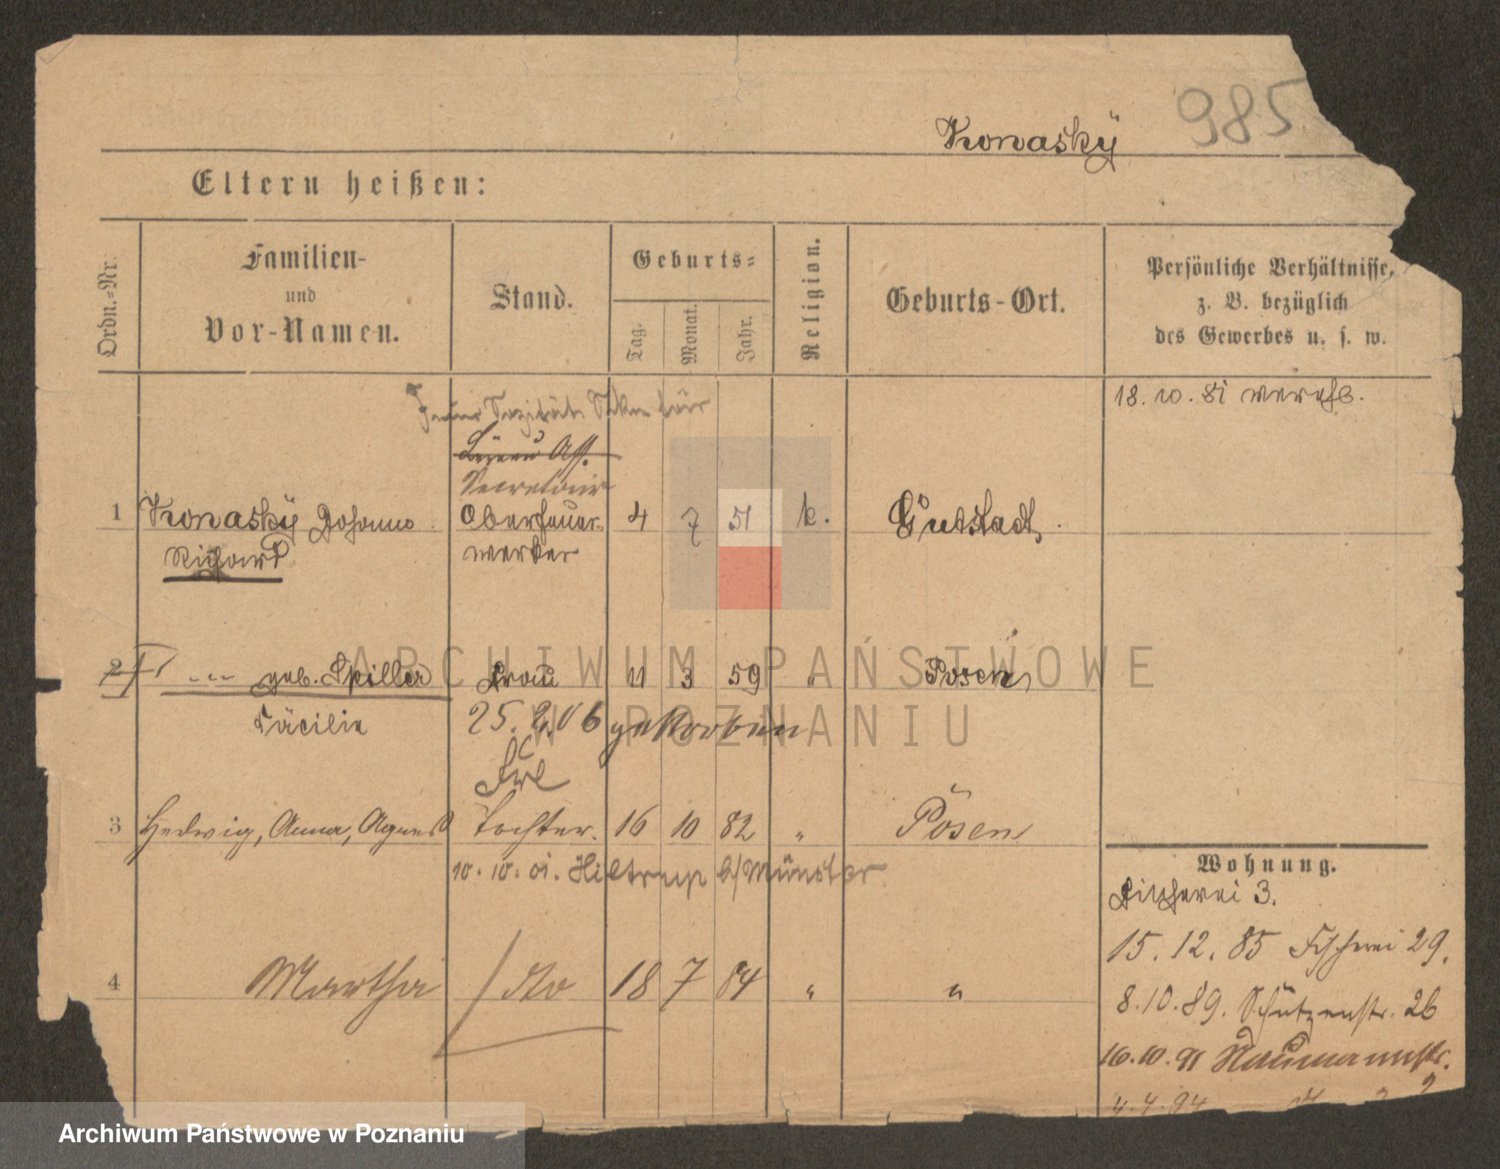 985
Konasky
Eltern heißen:
Ordn.-Nr.
Familien-
und
Vor-Namen.
Stand.
Geburts-
Tag.
Monat.
Jahr.
Religion.
Geburts-Ort.
Persönliche Verhältnisse,
z. B. bezüglich
des Gewerbes u. s. w.
18. 10. 81
Secretair
1 Konasky Johannes Oberfeuer- 4 7 51 k. Gutstadt
Richard werker
2 geb. Spiller Frau 11 3 59 " Posen
Cäcilie 25. 2. 06 gestorben
3 Hedwig, Anna, Agnes Tochter. 16 10 82 " Posen
10. 10. 01. Hiltrup b/Münster
4 Martha dto 18 7 84 " "
Wohnung.
Fischerei 3.
15. 12. 85 Fischerei 29.
8. 10. 89. Schützenstr. 26
16. 10. 91 Naumannstr.
4. 4. 94
ARCHIWUM PAŃSTWOWE
W POZNANIU
Archiwum Państwowe w Poznaniu